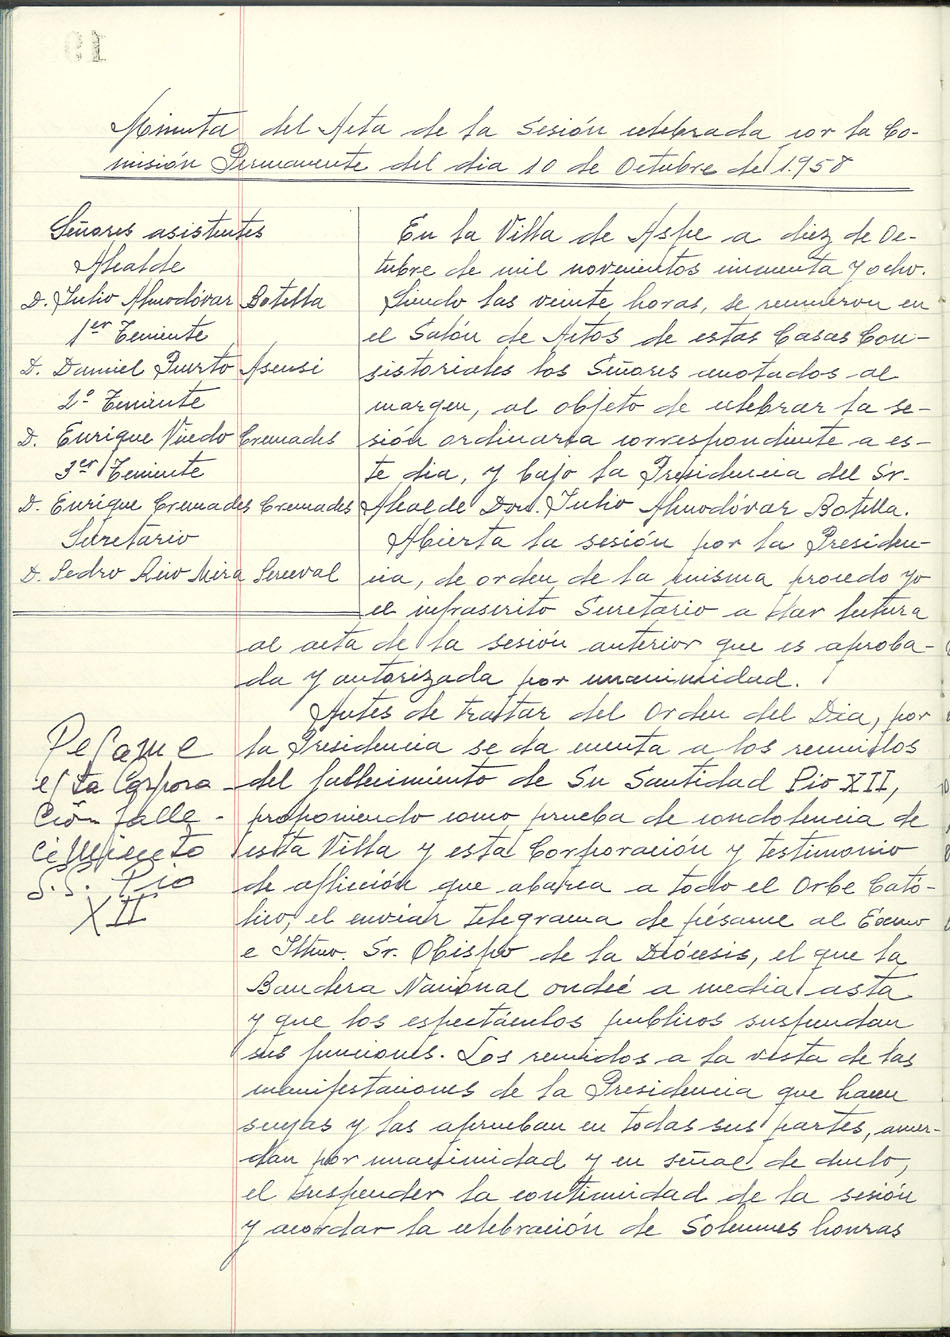 Minuta del Acta de la Sesión celebrada por la Co-
misión Permanente del dia 10 de Octubre de 1.958
Señores asistentes
Alcalde
D. Julio Almodóvar Botella
1er Teniente
D. Daniel Puerto Asensi
2º Teniente
D. Enrique Viudo Cremades
3er Teniente
D. Enrique Cremades Cremades
Secretario
D. Pedro Mira Perceval
En la Villa de Aspe a diez de Oc-
tubre de mil novecientos cincuenta y ocho.
Siendo las veinte horas, se reunieron en
el Salón de Actos de estas Casas Con-
sistoriales los Señores anotados al
margen, al objeto de celebrar la se-
sión ordinaria correspondiente a es-
te dia, y bajo la Presidencia del Sr.
Alcalde Don Julio Almodóvar Botella.
Abierta la sesión por la Presiden-
cia, de orden de la misma procedo yo
el infrascrito Secretario a dar lectura
al acta de la sesión anterior que es aproba-
da y autorizada por unanimidad.
Antes de tratar del Orden del Dia, por
la Presidencia se da cuenta a los reunidos
del fallecimiento de Su Santidad Pio XII,
proponiendo como prueba de condolencia de
esta Villa y esta Corporación y testimonio
de aflicción que abarca a todo el Orbe Cató-
lico, el enviar telegrama de pésame al Excmo
e Iltmo. Sr. Obispo de la Diócesis, el que la
Bandera Nacional ondeé a media asta
y que los espectáculos publicos suspendan
sus funciones. Los reunidos a la vista de las
manifestaciones de la Presidencia que hacen
suyas y las aprueban en todas sus partes, acuer-
dan por unanimidad y en señal de duelo,
el suspender la continuidad de la sesión
y acordar la celebración de Solemnes honras
Pesame
esta Corpora-
ción falle-
cimiento
S.S. Pio
XII